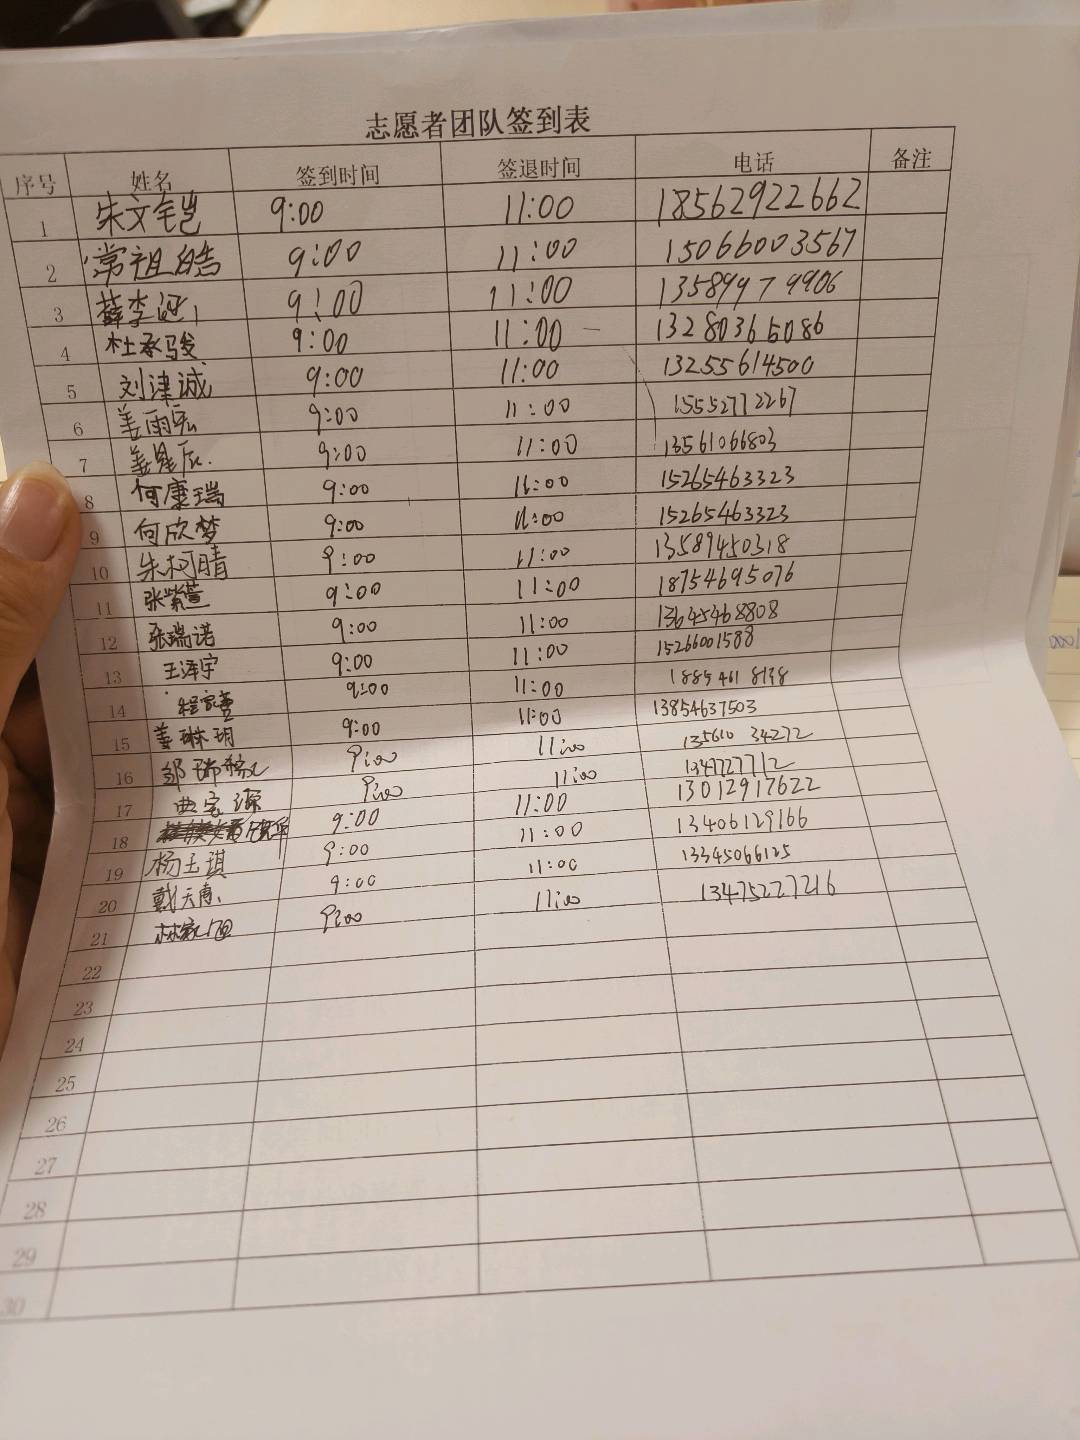 志愿者团队签到表
序号 姓名 签到时间 签退时间 电话 备注
1 朱文 9:00 11:00 18562922662
2 常祖皓 9:00 11:00 15066003567
3 薛李 9:00 11:00 13589979906
4 杜承骏 9:00 11:00 13280365086
5 刘津诚 9:00 11:00 13255614500
6 姜雨宏 9:00 11:00 15552772267
7 姜星辰. 9:00 11:00 13561066803
8 何康瑞 9:00 11:00 15265463323
9 何欣梦 9:00 11:00 15265463323
10 朱柯晴 9:00 11:00 13589450318
11 张紫萱 9:00 11:00 18754695076
12 张瑞诺 9:00 11:00 13645468808
13 王泽宇 9:00 11:00 15266001588
14 程家萱 9:00 11:00
15 姜琳玥 9:00 11:00 13854637503
16 邹瑞 9:00 11:00 13561034272
17 曲家源 9:00 11:00 1347727712
18 9:00 11:00 13012917622
19 杨玉琪 9:00 11:00 13406129166
20 戴天 9:00 11:00 13345066125
21 林家 9:00 11:00 13475227216
22
23
24
25
26
27
28
29
30